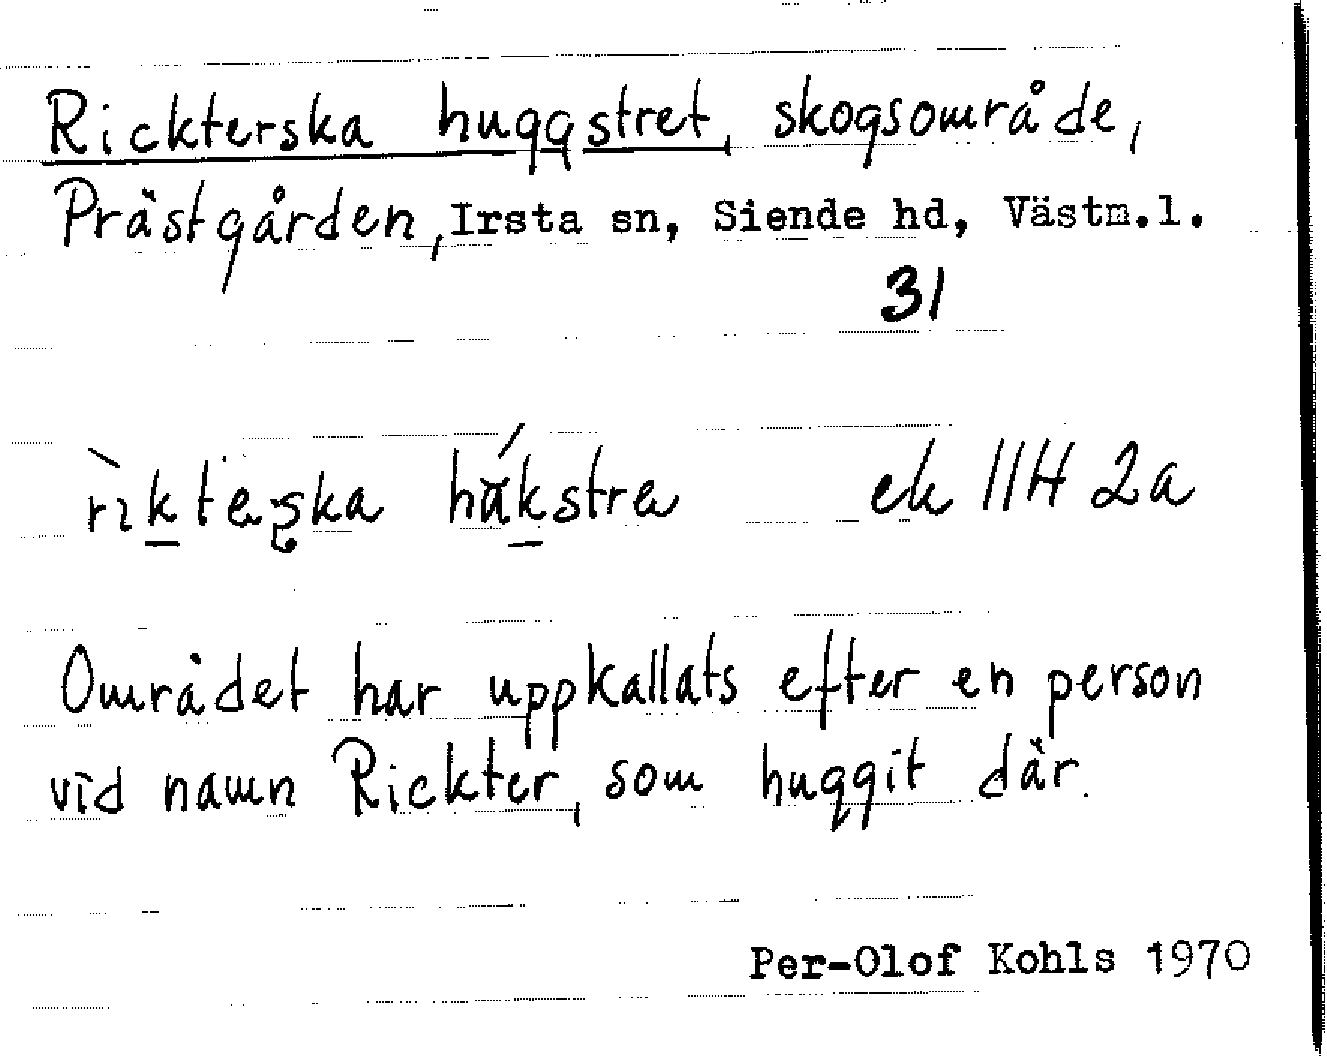 Rickterska huggstret, skogsområde,
Prästgården, Irsta sn, Siende hd, Västm.l.
31
ek 11H 2a
Området har uppkallats efter en person
vid namn Rickter, som huggit där.
Per-Olof Kohls 1970